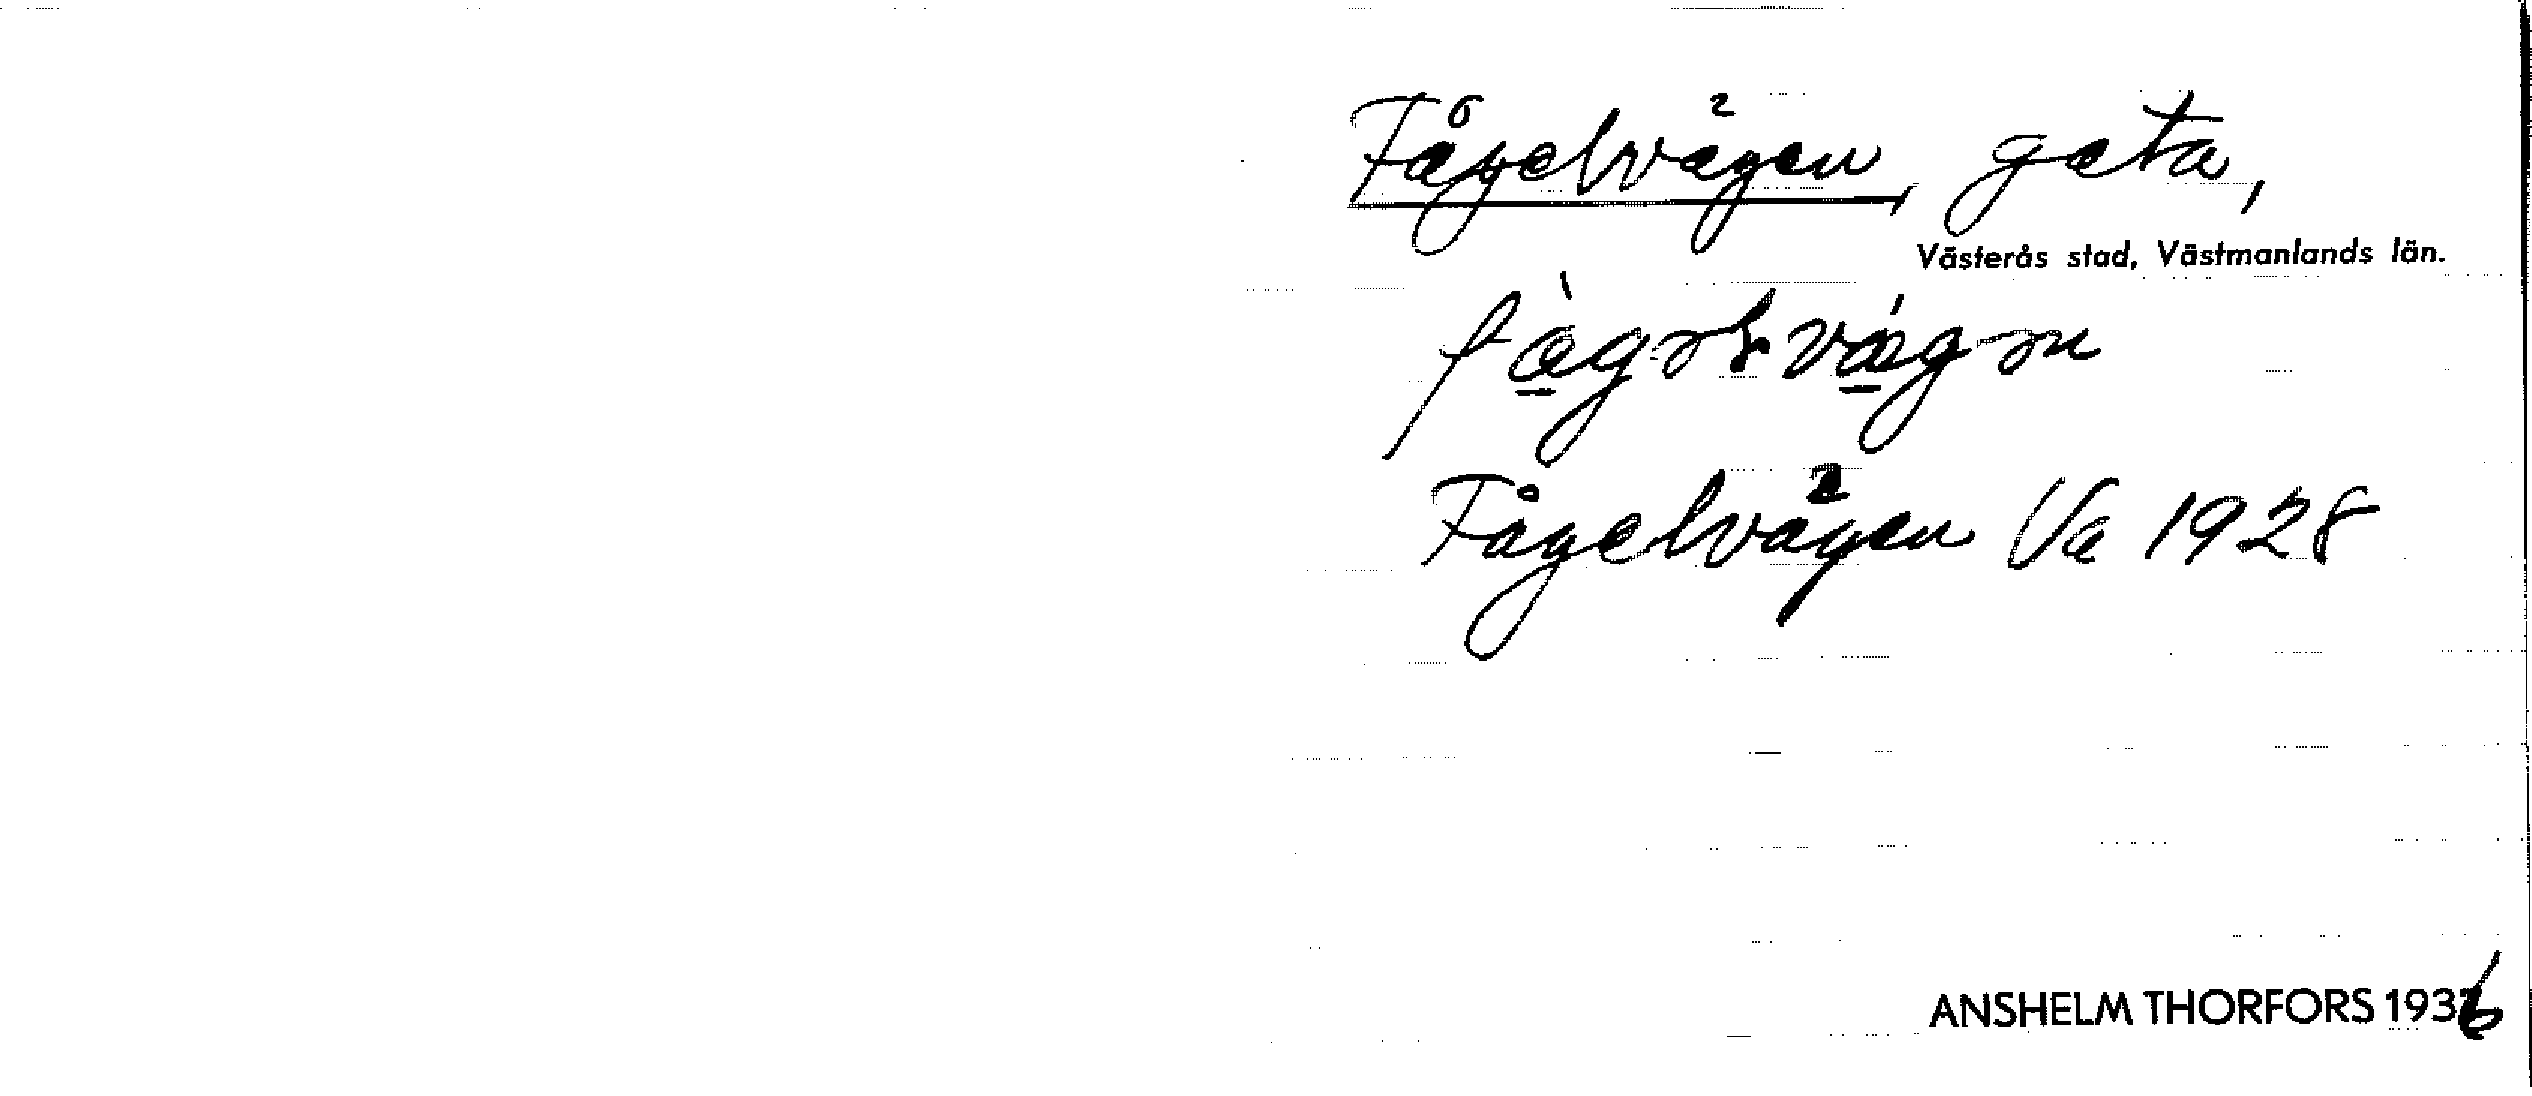 Fågelvägen, gata,
Västerås stad, Västmanlands län.
Fågelvägen Va 1928
ANSHELM THORFORS 1936